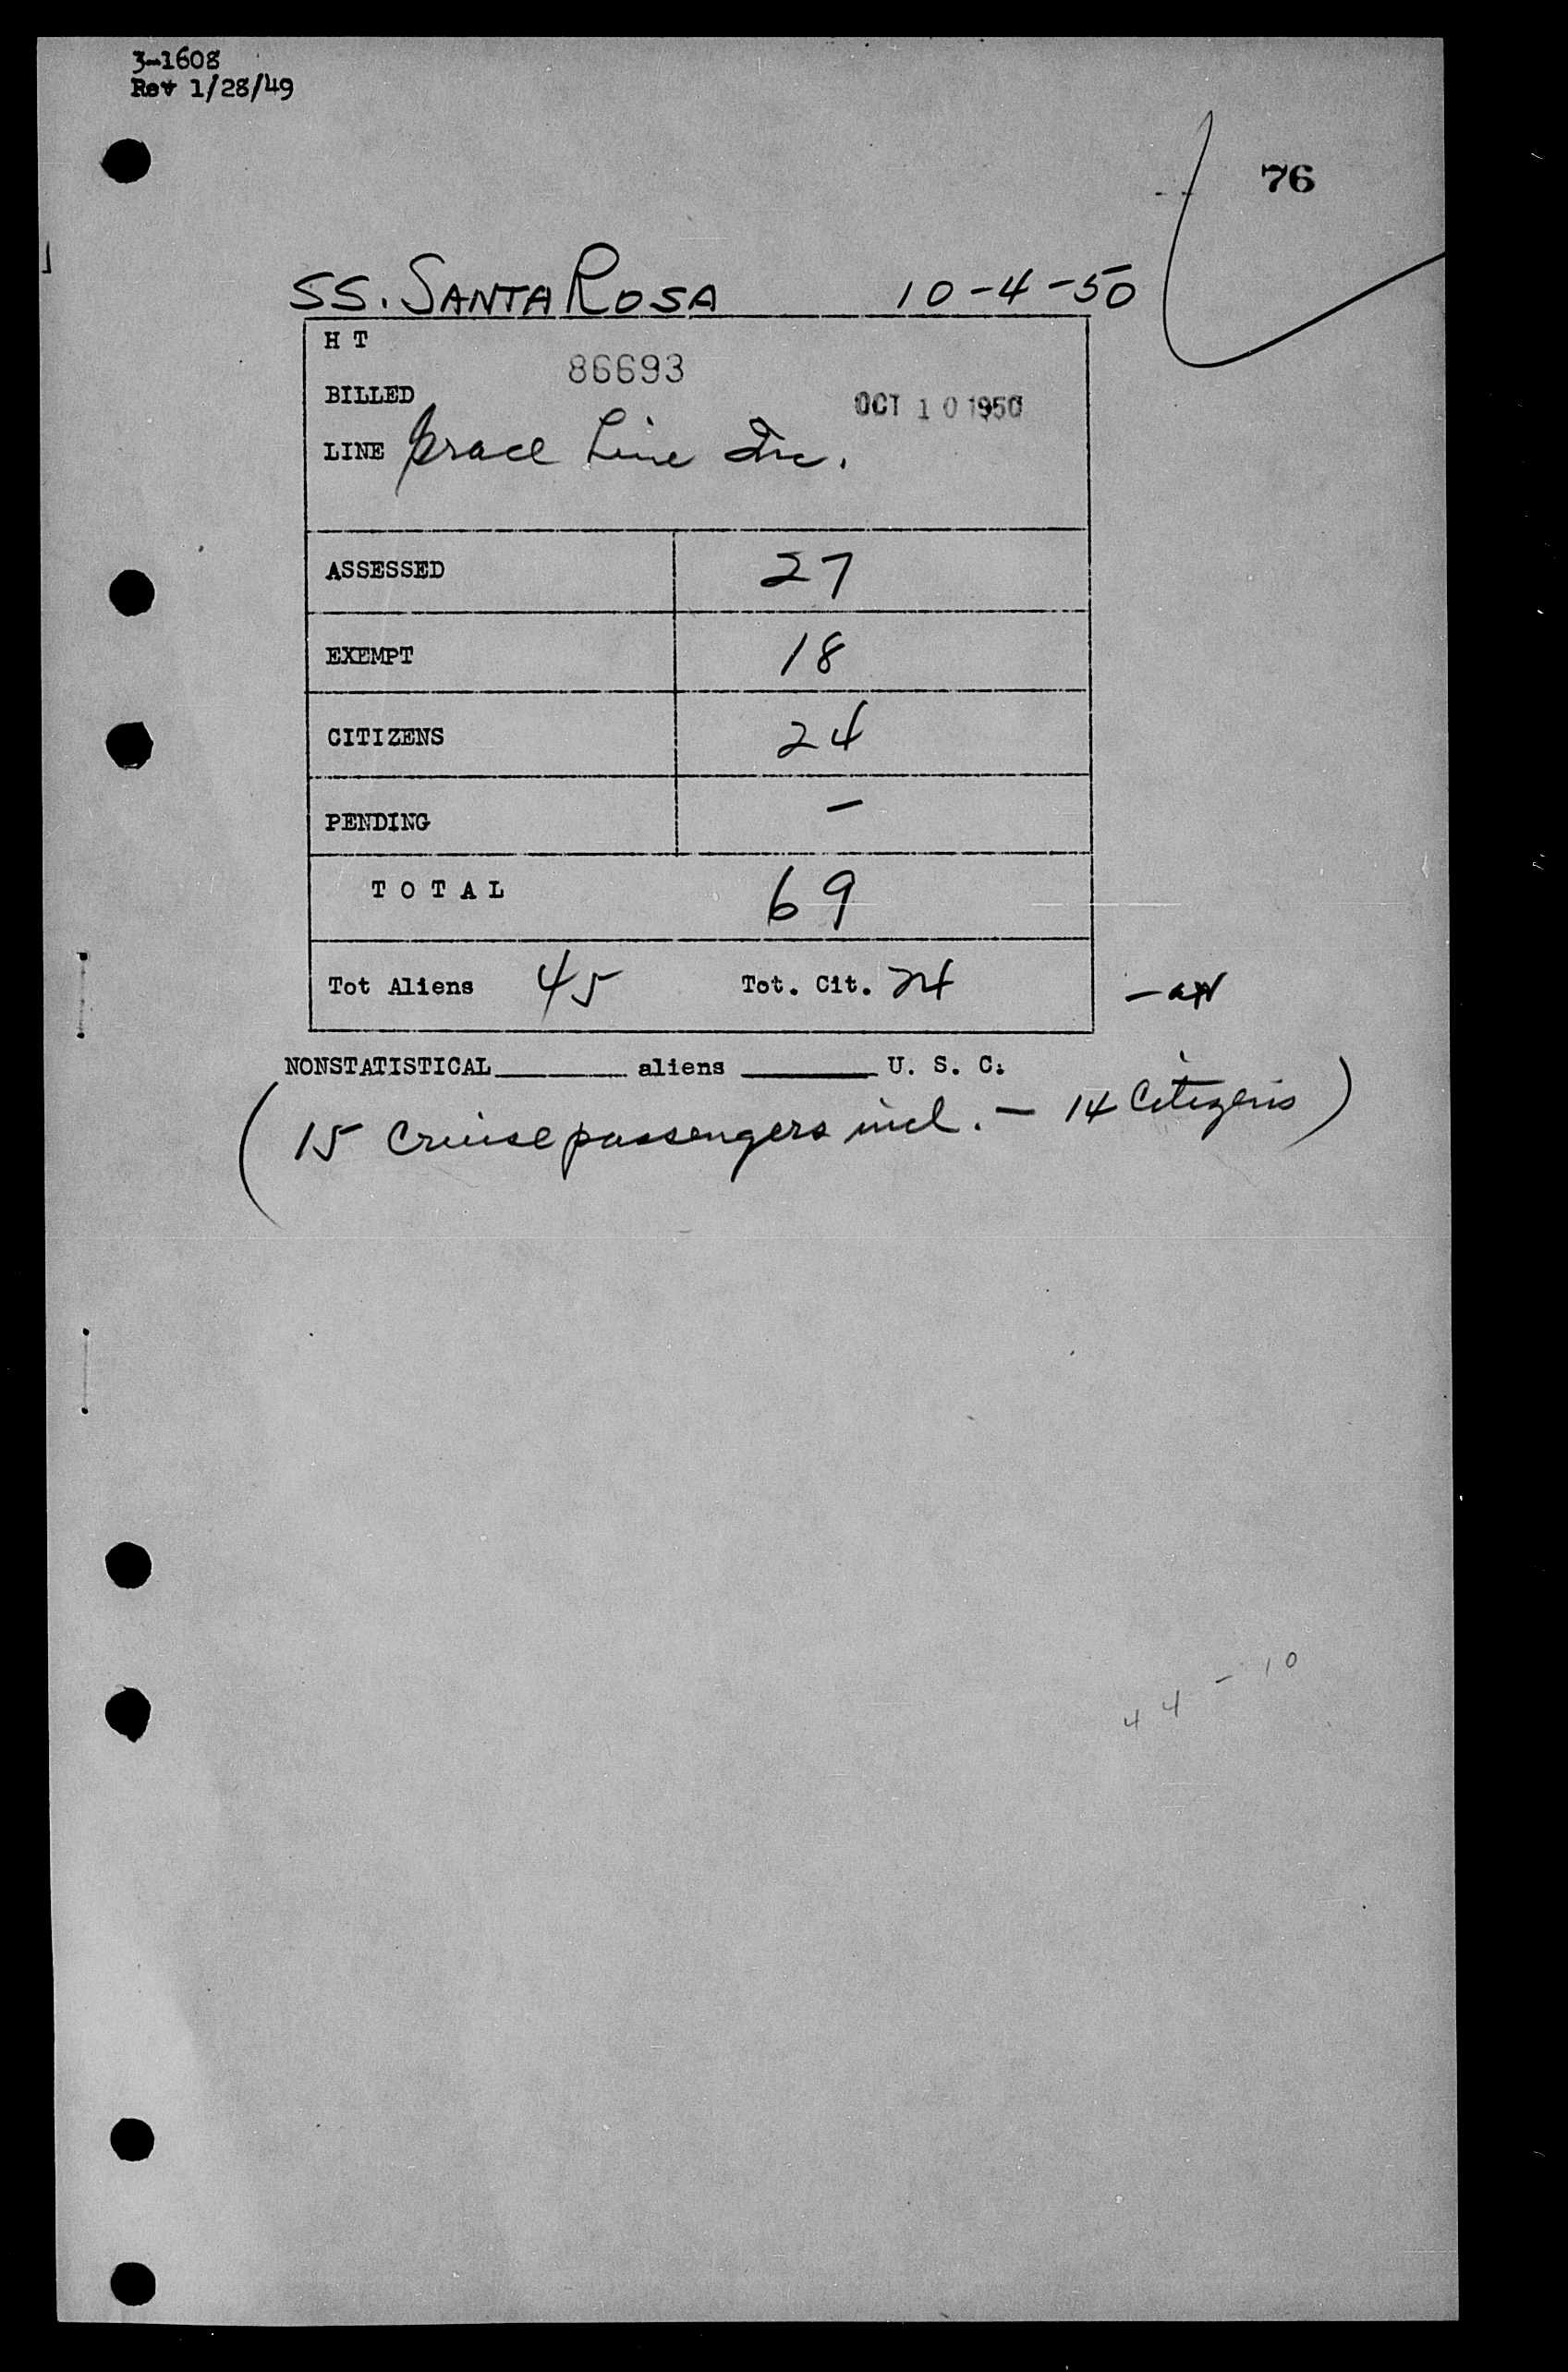 3-1608
Rev 1/28/49
76
SS. SANTA ROSA 10-4-50
H T
86693
BILLED OCT 10 1950
LINE Grace Line Inc.
ASSESSED 27
EXEMPT 18
CITIZENS 24
PENDING –
TOTAL 69
Tot Aliens 45 Tot. Cit. 24
NONSTATISTICAL ______ aliens ______ U. S. C.
(15 Cruise passengers incl. – 14 Citizens)
44 - 10